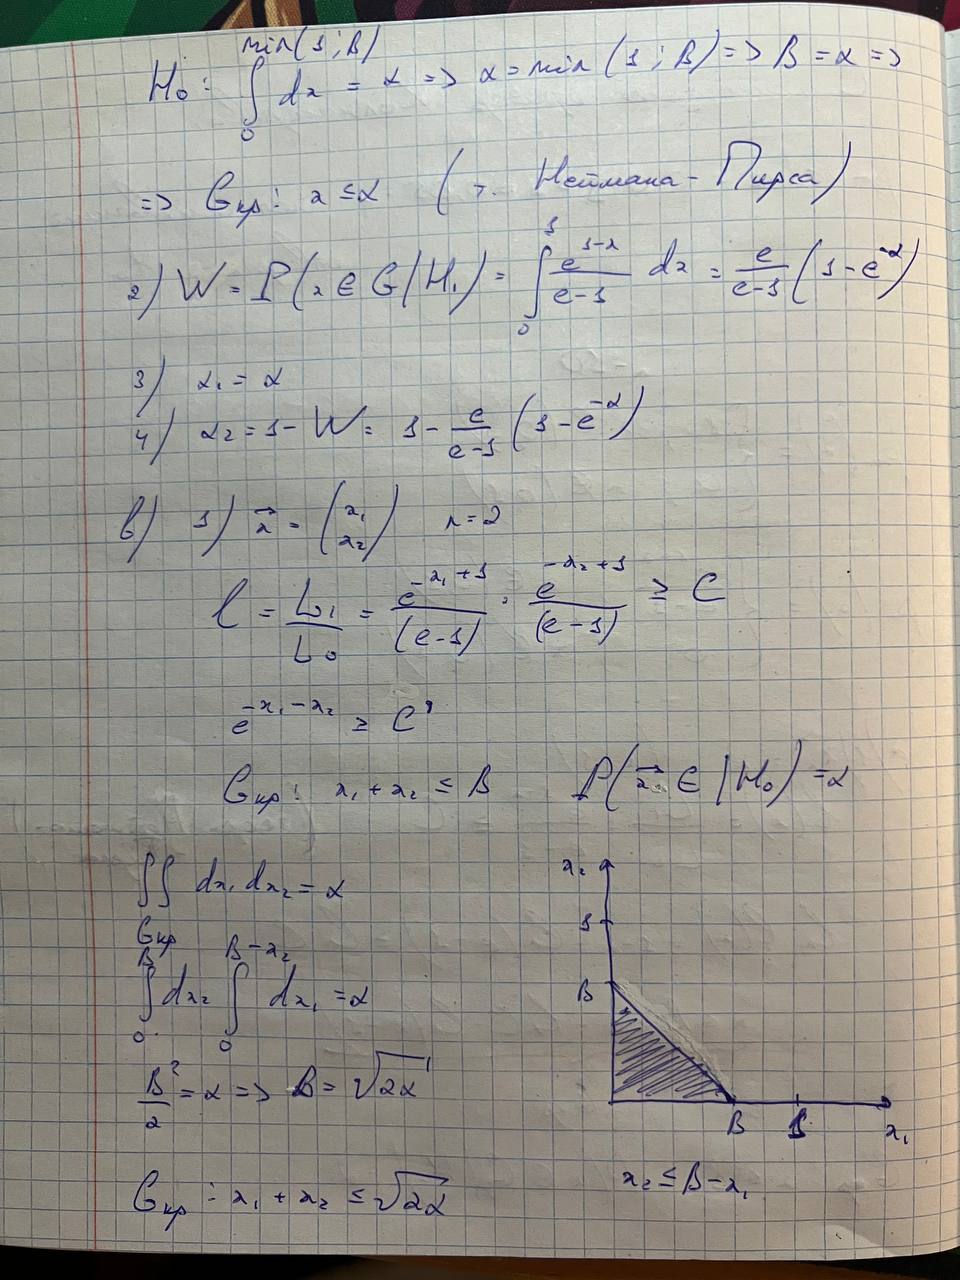 min(1; B)
H₀: ∫ dx = α => α = min (1; B) => B = α =>
0
=> Gкр: x ≤ α ( т. Неймана - Пирса)
1
2) W = P(x ∈ G | H₁) = ∫ e^{1-x}/(e-1) dx = e/(e-1) (1 - e^{-α})
0
3) α₁ = α
4) α₂ = 1 - W = 1 - e/(e-1) (1 - e^{-α})
в) 1) x⃗ = (x₁ x₂) n = 2
l = L₁/L₀ = e^{-x₁+1}/(e-1) · e^{-x₂+1}/(e-1) ≥ C
e^{-x₁-x₂} ≥ C'
Gкр: x₁ + x₂ ≤ B P(x⃗ ∈ | H₀) = α
∬ dx₁ dx₂ = α
Gкр
B B-x₂
∫ dx₂ ∫ dx₁ = α
0 0
B²/2 = α => B = √2α
Gкр: x₁ + x₂ ≤ √2α
x₂
1
B
B 1
x₁
x₂ ≤ B - x₁